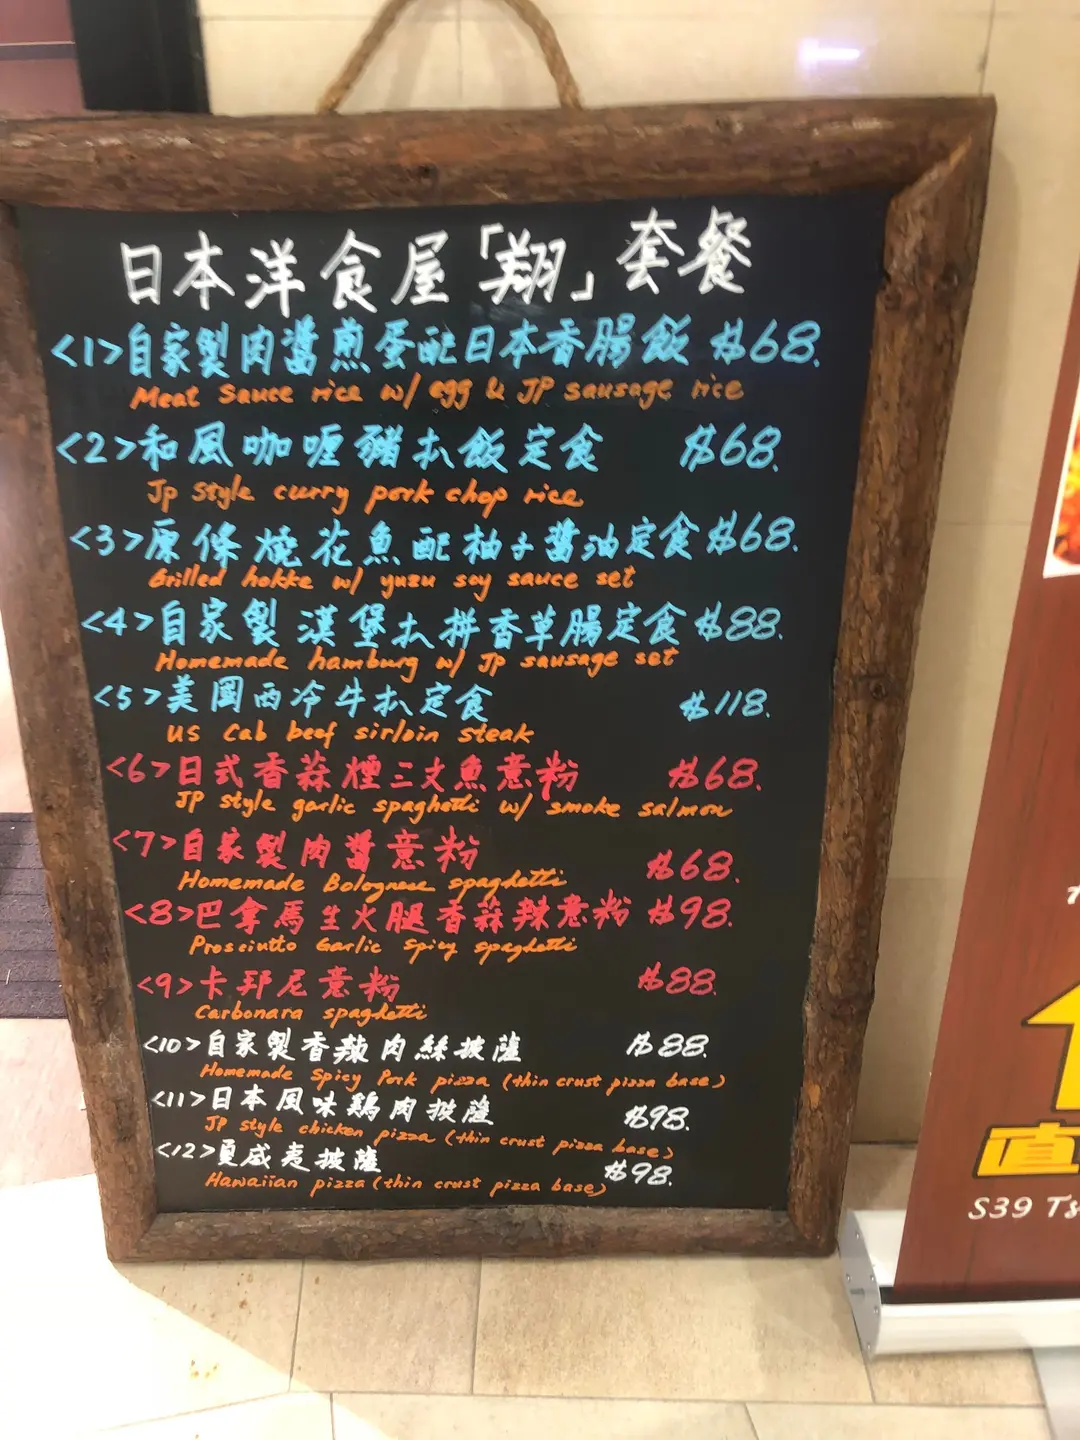 日本洋食屋「翔」套餐
<1>自家製肉醬煎蛋配日本香腸飯 $68.
Meat Sauce rice w/ egg & JP sausage rice
<2>和風咖喱豬扒飯定食 $68.
Jp Style curry pork chop rice
<3>原條燒花魚配柚子醬油定食 $68.
Grilled hokke w/ yuzu soy sauce set
<4>自家製漢堡扒拼香草腸定食 $88.
Homemade hamburg w/ JP sausage set
<5>美國西冷牛扒定食 $118.
US Cab beef sirloin steak
<6>日式香蒜煙三文魚意粉 $68.
JP style garlic spaghetti w/ smoke salmon
<7>自家製肉醬意粉 $68.
Homemade Bolognese spaghetti
<8>巴拿馬生火腿香蒜辣意粉 $98.
Prosciutto Garlic Spicy spaghetti
<9>卡邦尼意粉 $88.
Carbonara spaghetti
<10>自家製香辣肉絲披薩 $88.
Homemade Spicy Pork pizza (thin crust pizza base)
<11>日本風味鶏肉披薩 $98.
JP style chicken pizza (thin crust pizza base)
<12>夏威夷披薩 $98.
Hawaiian pizza (thin crust pizza base)
直
S39 Ts